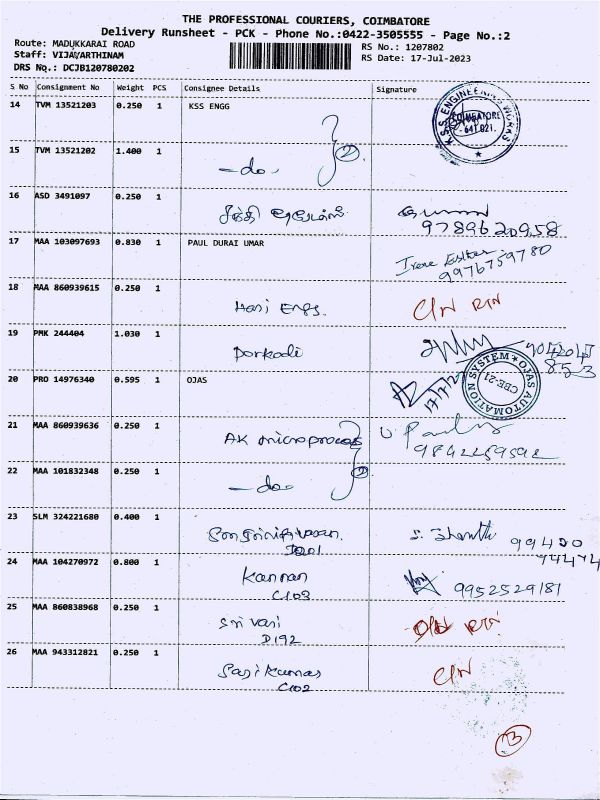 THE PROFESSIONAL COURIERS, COIMBATORE
Delivery Runsheet - PCK - Phone No.:0422-3505555 - Page No.:2
Route: MADUKKARAI ROAD
Staff: VIJAYARTHINAM
DRS No.: DCJB120780202
RS No.: 1207802
RS Date: 17-Jul-2023
S No Consignment No Weight PCS Consignee Details Signature
14 TVM 13521203 0.250 1 KSS ENGG
K.S.S. ENGINEERING WORKS
COIMBATORE
641 021.
15 TVM 13521202 1.400 1 -do- 2
16 ASD 3491097 0.250 1 சக்தி
9789620958
17 MAA 103097693 0.830 1 PAUL DURAI UMAR
9976759780
18 MAA 860939615 0.250 1 Hari Engg. C/N RTN
19 PMK 244404 1.030 1 Porkodi
853
20 PRO 14976340 0.595 1 OJAS
17/7/2
OJAS AUTOMATION SYSTEM
CBE-21
21 MAA 860939636 0.250 1 AK microprocess
9842259592
22 MAA 101832348 0.250 1 -do- 2
23 SLM 324221680 0.400 1 S. Shanthi 99420
D201
24 MAA 104270972 0.800 1 Kannan 9952529181
C103
25 MAA 860838968 0.250 1 Sri Vari RTN
D192
26 MAA 943312821 0.250 1 Sasikumar C/N
C102
13